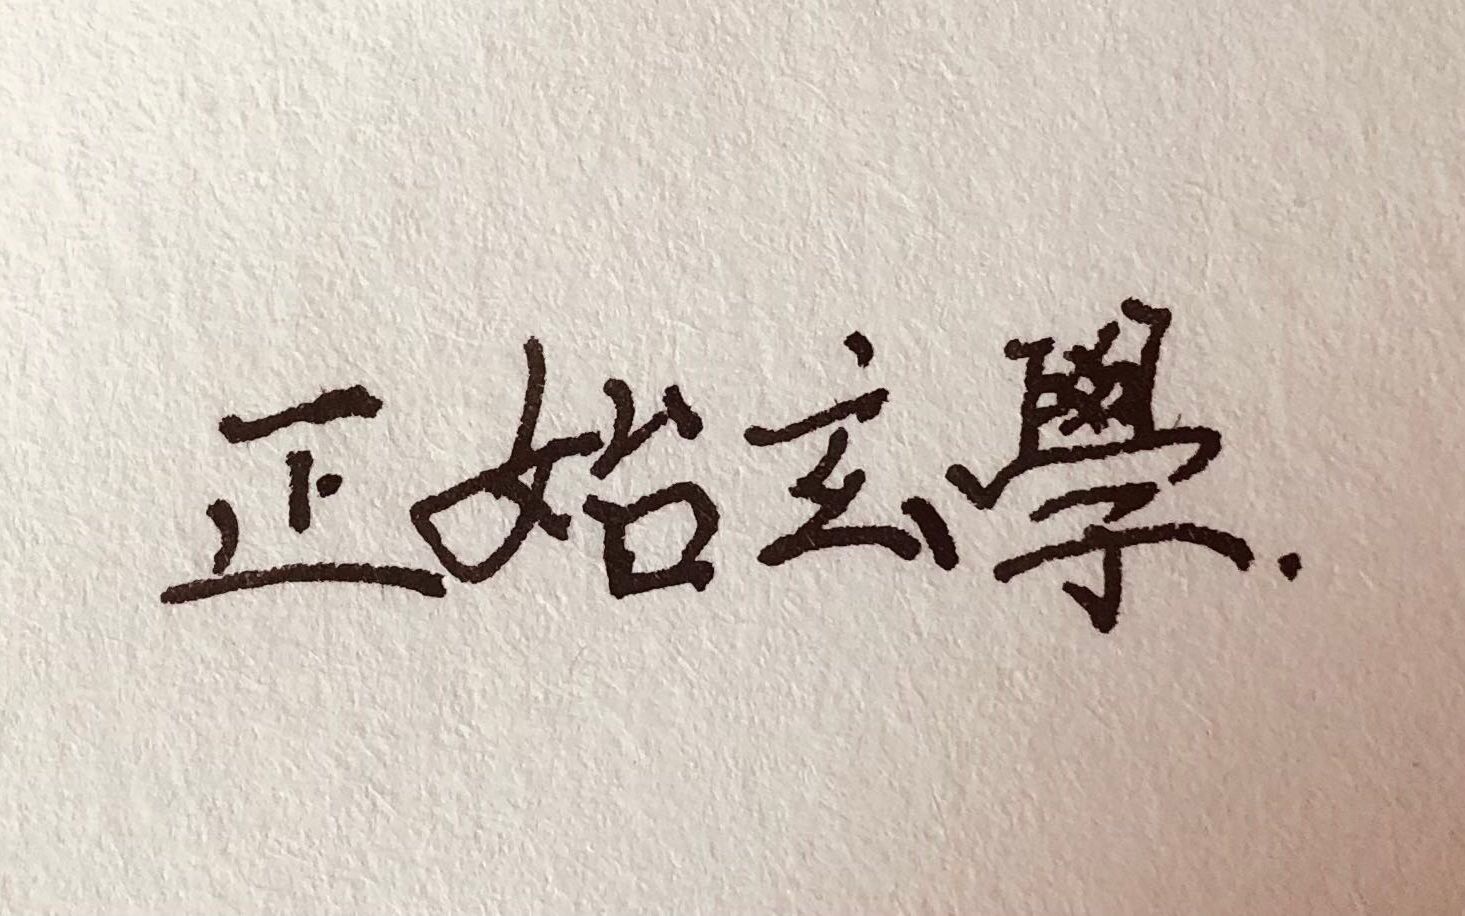 正始玄學.